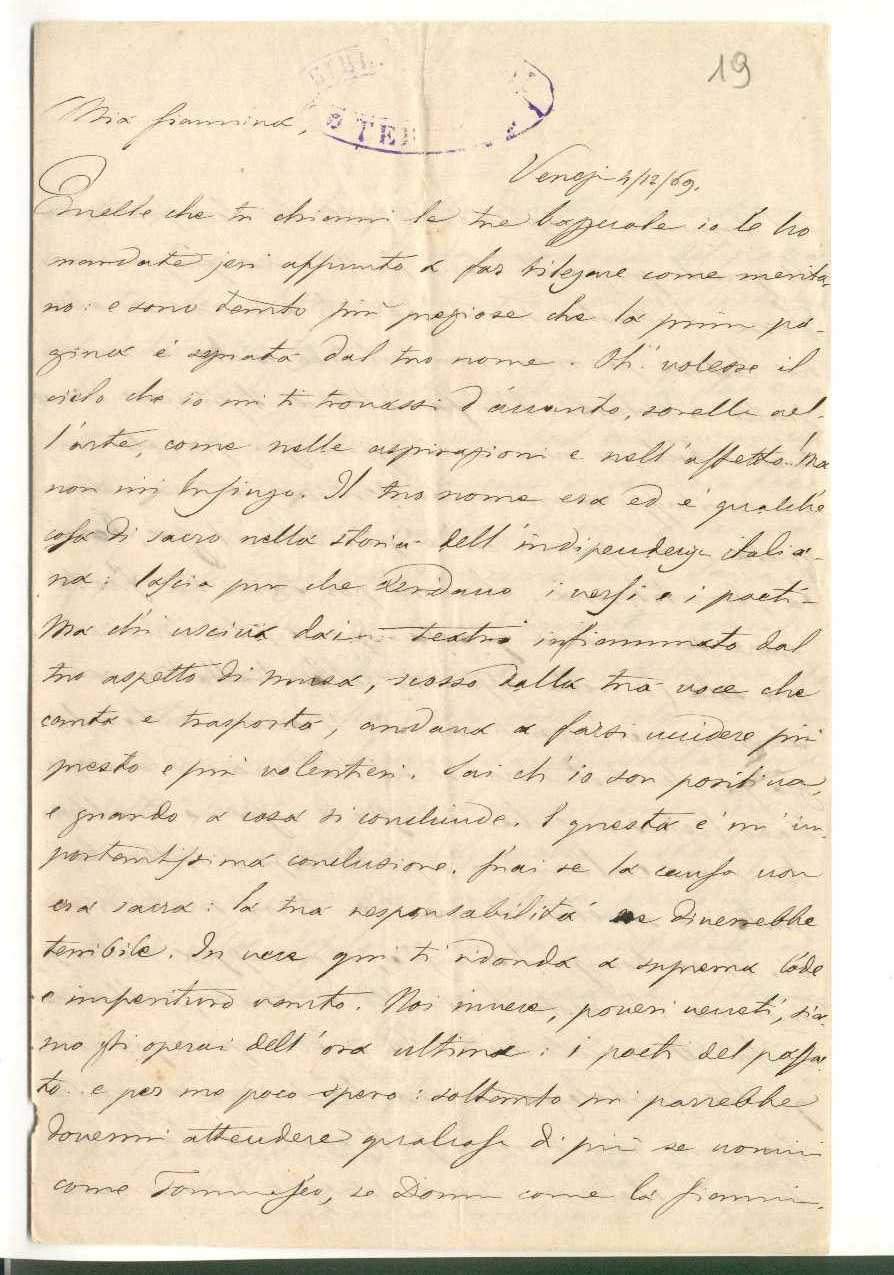 19
BIBL
TE
Mia Giannina,
Venezia 4/12/69.
Quelle che tu chiami le tue bazzecole io le ho
mandate jeri appunto a far rilegare come merita-
no: e sono tanto più preziose che la prima pa-
gina è segnata dal tuo nome. Oh! volesse il
cielo che io mi ti trovassi d'accanto, sorella nel-
l'arte, come nelle aspirazioni e nell'affetto! Ma
non mi lusingo. Il tuo nome era ed è qualche
cosa di sacro nella storia dell'indipendenza italia-
na: lascia pur che deridano i versi e i poeti-
Ma chi usciva dai teatri infiammato dal
tuo aspetto di musa, scosso dalla tua voce che
canta e trasporta, andava a farsi uccidere più
presto e più volentieri. Sai ch'io son positiva,
e guardo a cosa si conchiude. E questa è un'im-
portantissima conclusione. Guai se la causa non
era sacra: la tua responsabilità ne diverrebbe
terribile. In vece qui ti ridonda a suprema lode
e imperituro vanto. Noi invece, poveri veneti, sia-
mo gli operai dell'ora ultima: i poeti del passa-
to. e per me poco spero: soltanto mi parrebbe
dovermi attendere qualcosa di più se uomini
come Tommaséo, se Donne come la Giannina